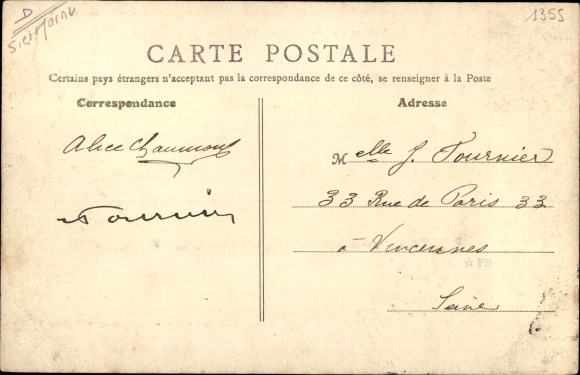 D
S et Marne
1355
CARTE POSTALE
Certains pays étrangers n'acceptant pas la correspondance de ce côté, se renseigner à la Poste
Correspondance
Adresse
Alice Chaumont
Tournier
Melle J. Tournier
33 Rue de Paris 33
à Vincennes
☆FB
Seine